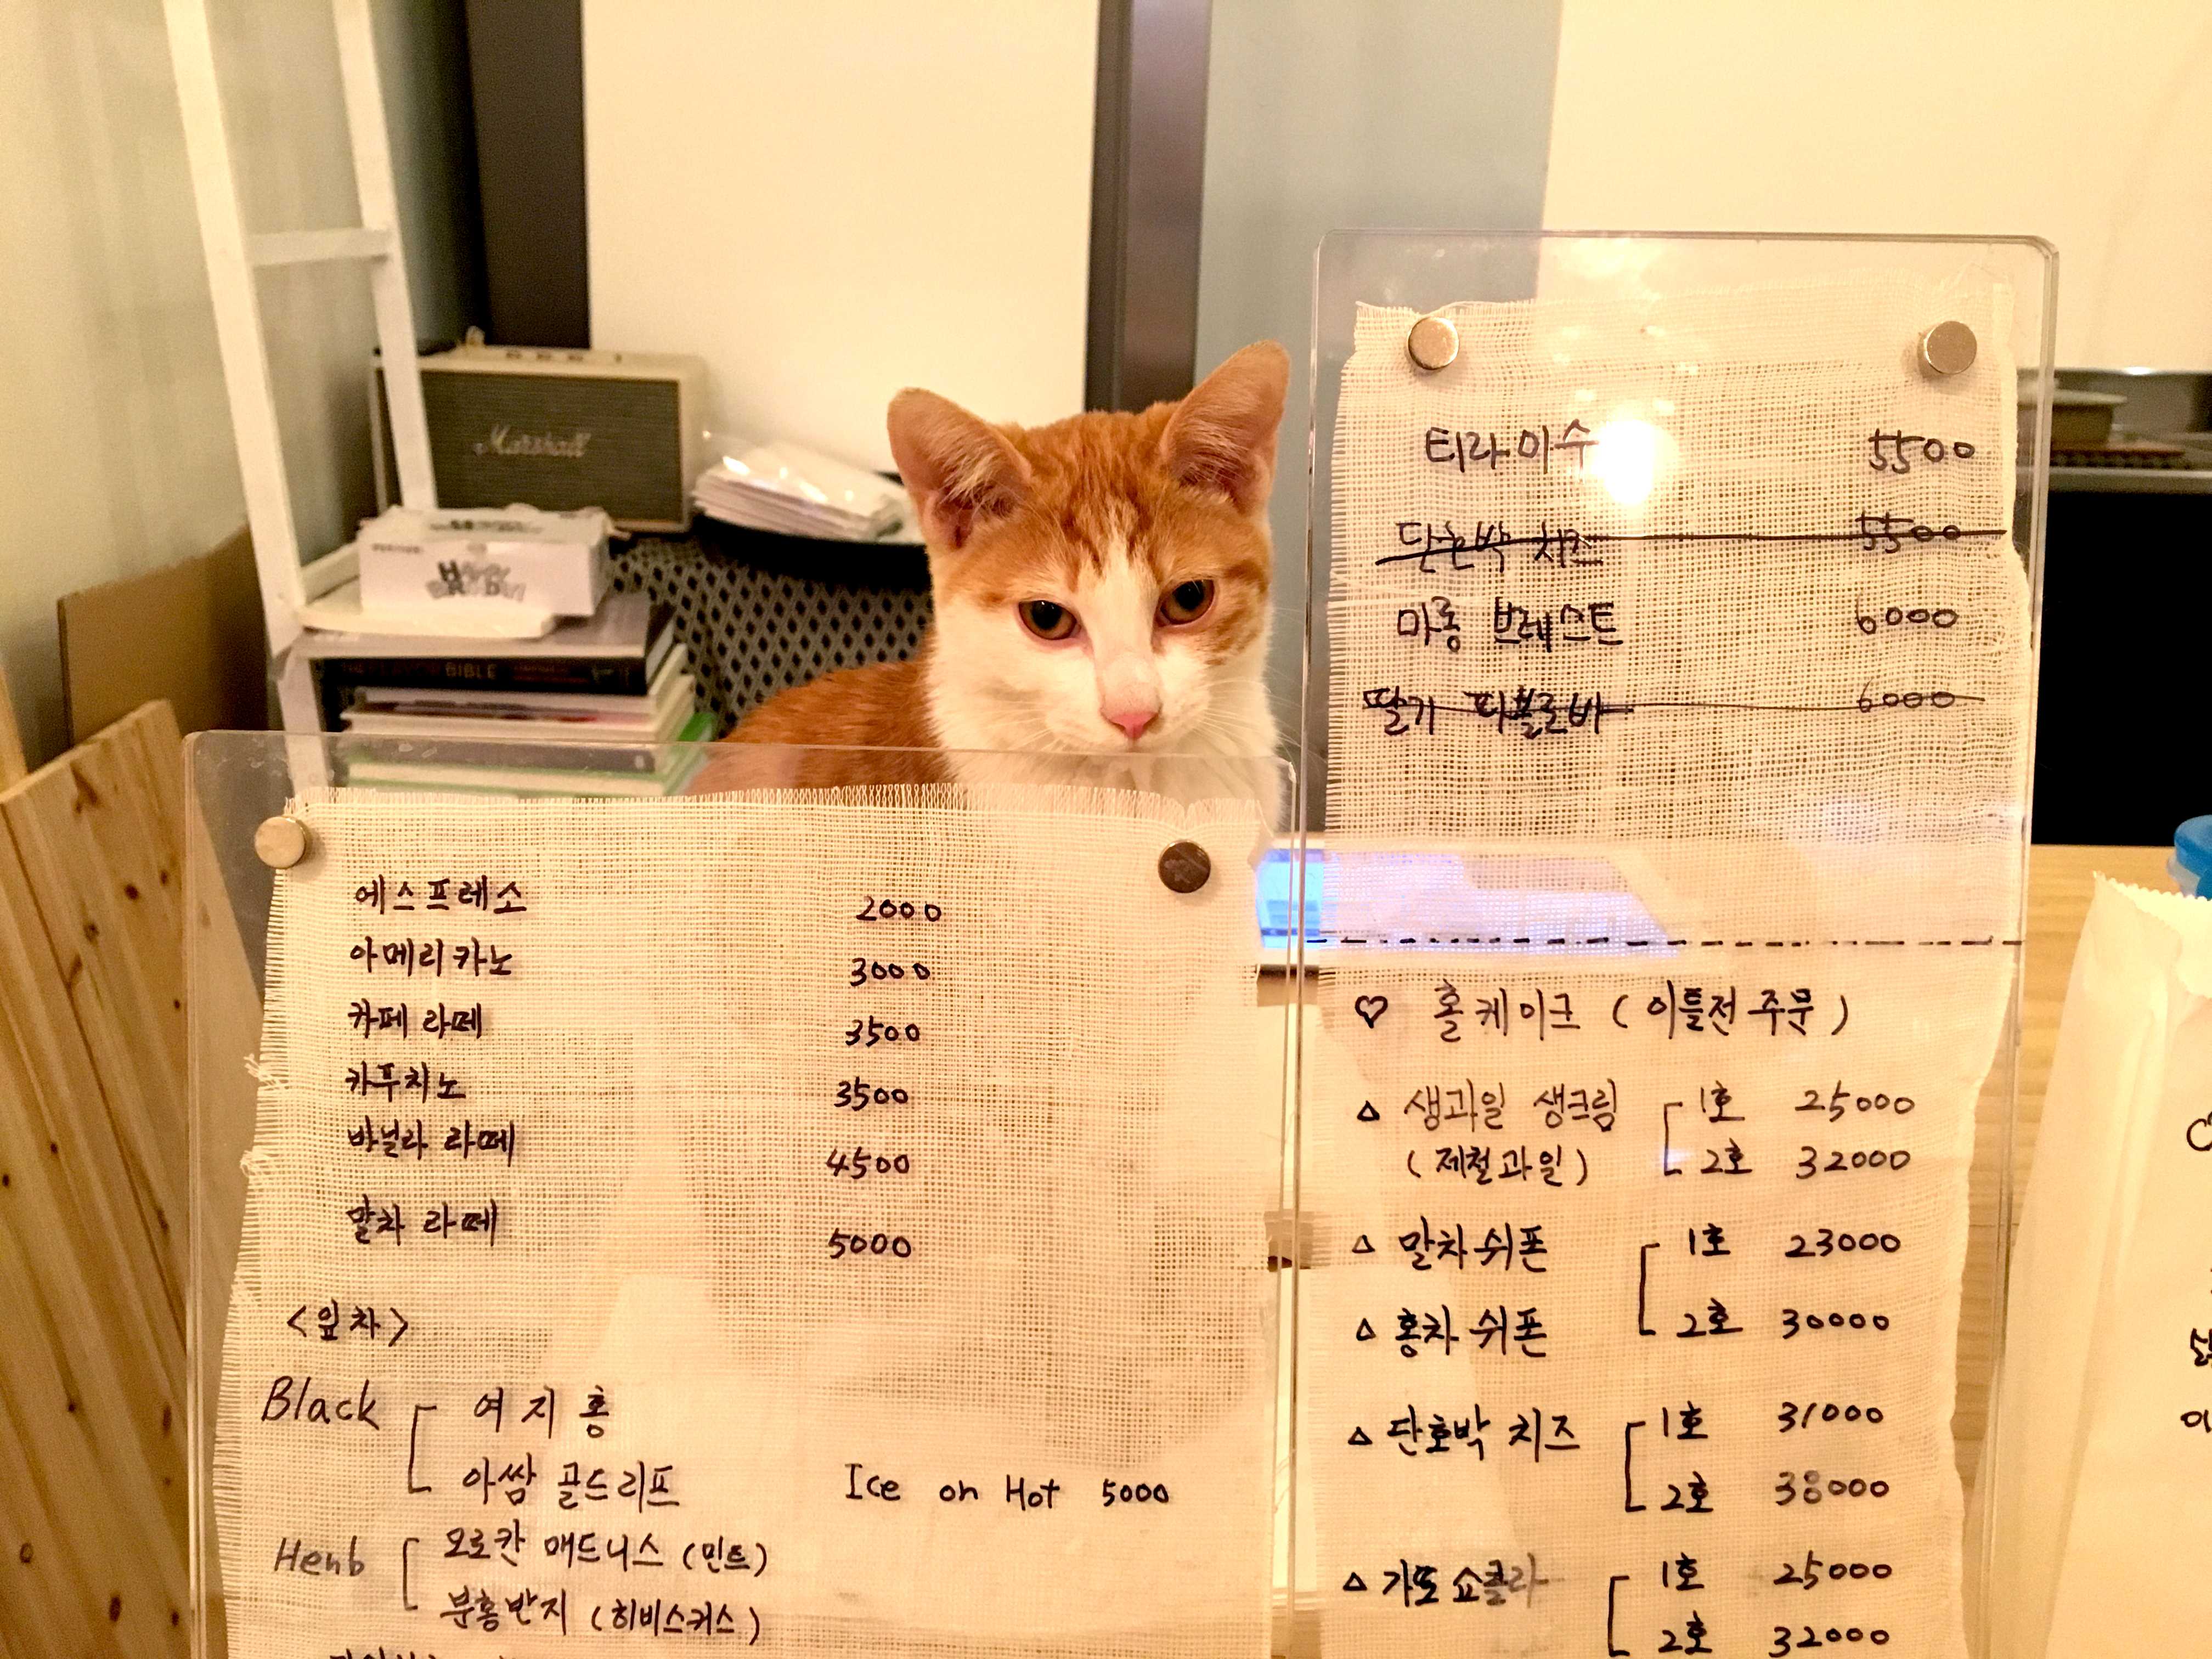 Marshall
BIBLE
에스프레소 2000
아메리카노 3000
카페 라떼 3500
카푸치노 3500
바닐라 라떼 4500
말차 라떼 5000
<잎차>
Black 여지홍
아쌈 골드리프
Ice or Hot 5000
Herb 모로칸 매드니스 (민트)
분홍반지 (히비스커스)
티라미수 5500
단호박 치즈 5500
마롱 브레스트 6000
딸기 파블로바 6000
♡ 홀케이크 (이틀전 주문)
△ 생과일 생크림 1호 25000
(제철과일) 2호 32000
△ 말차 쉬폰 1호 23000
△ 홍차 쉬폰 2호 30000
△ 단호박 치즈 1호 31000
2호 38000
△ 가또 쇼콜라 1호 25000
2호 32000